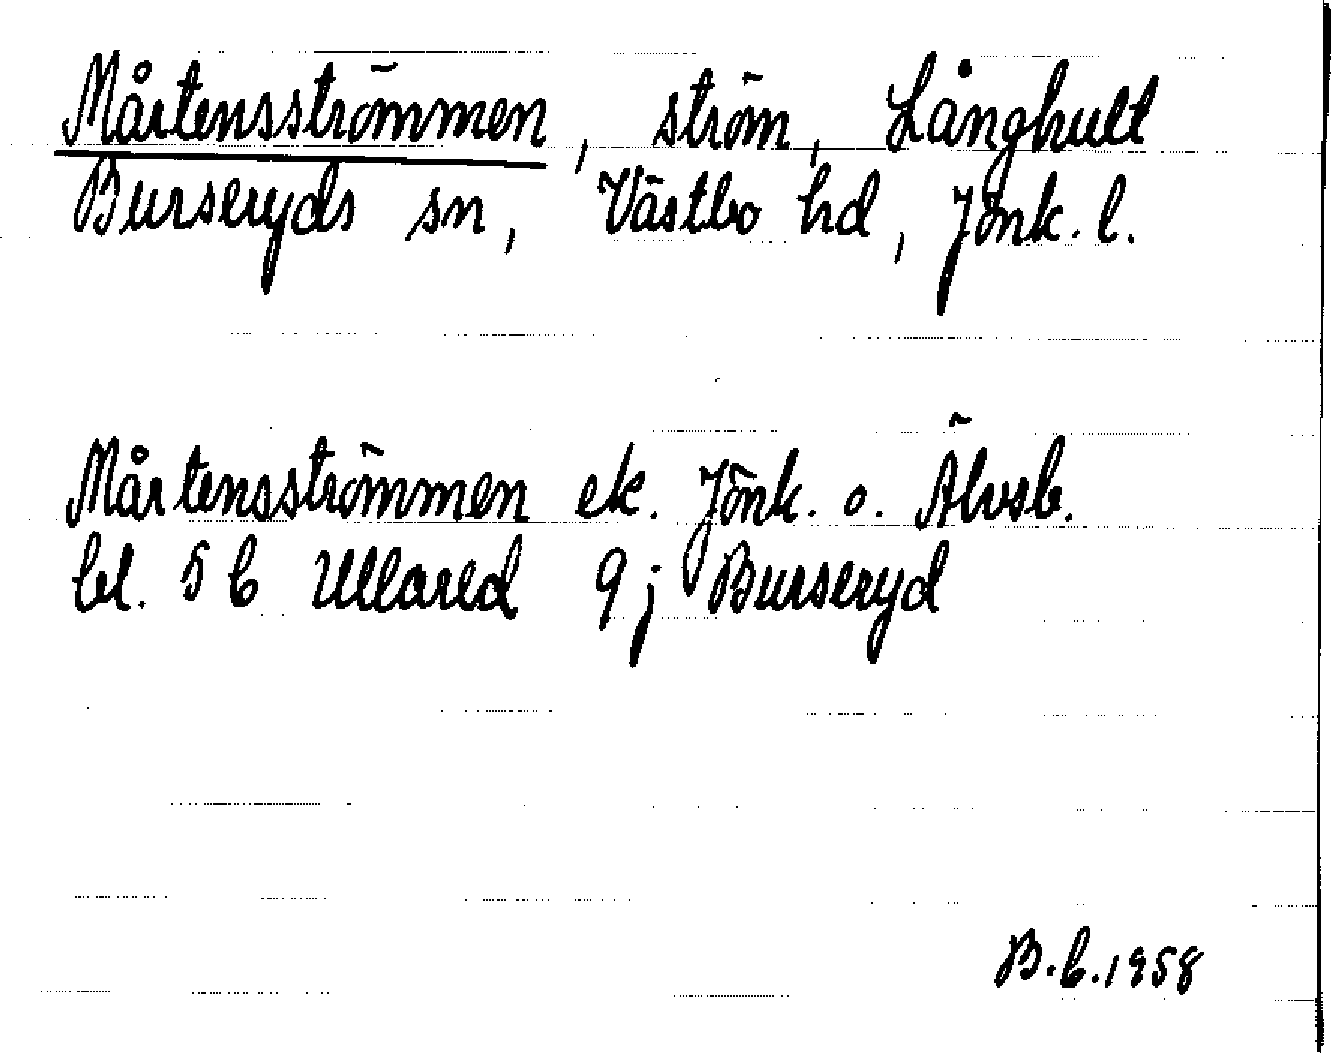 Mårtensströmmen, ström, Långhult
Burseryds sn, Västbo hd, Jönk. l.
Mårtensströmmen ek. Jönk. o. Älvsb.
bl. 5 b Ullared 9 j Burseryd
B.b.1958